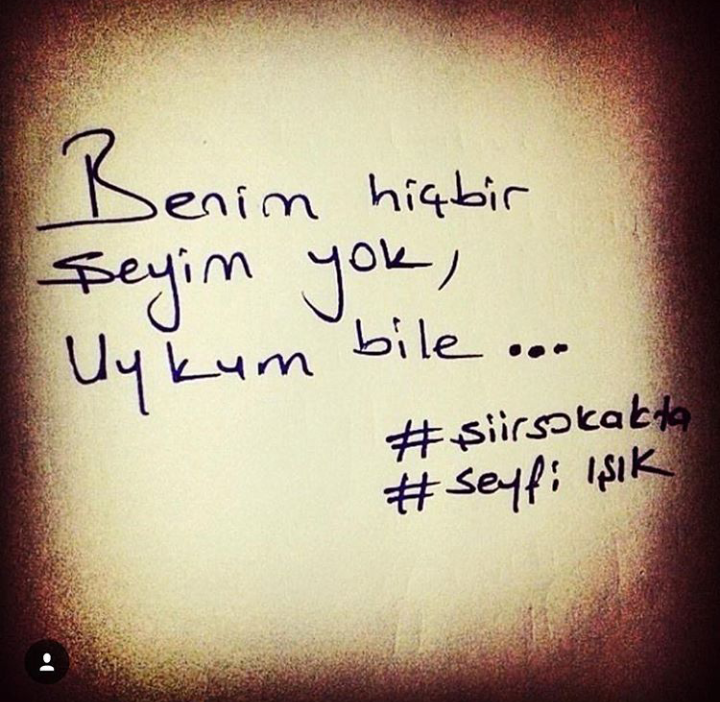 Benim hiçbir
Şeyim yok,
Uykum bile ...
#şiirsokakta
#seyfi ışık